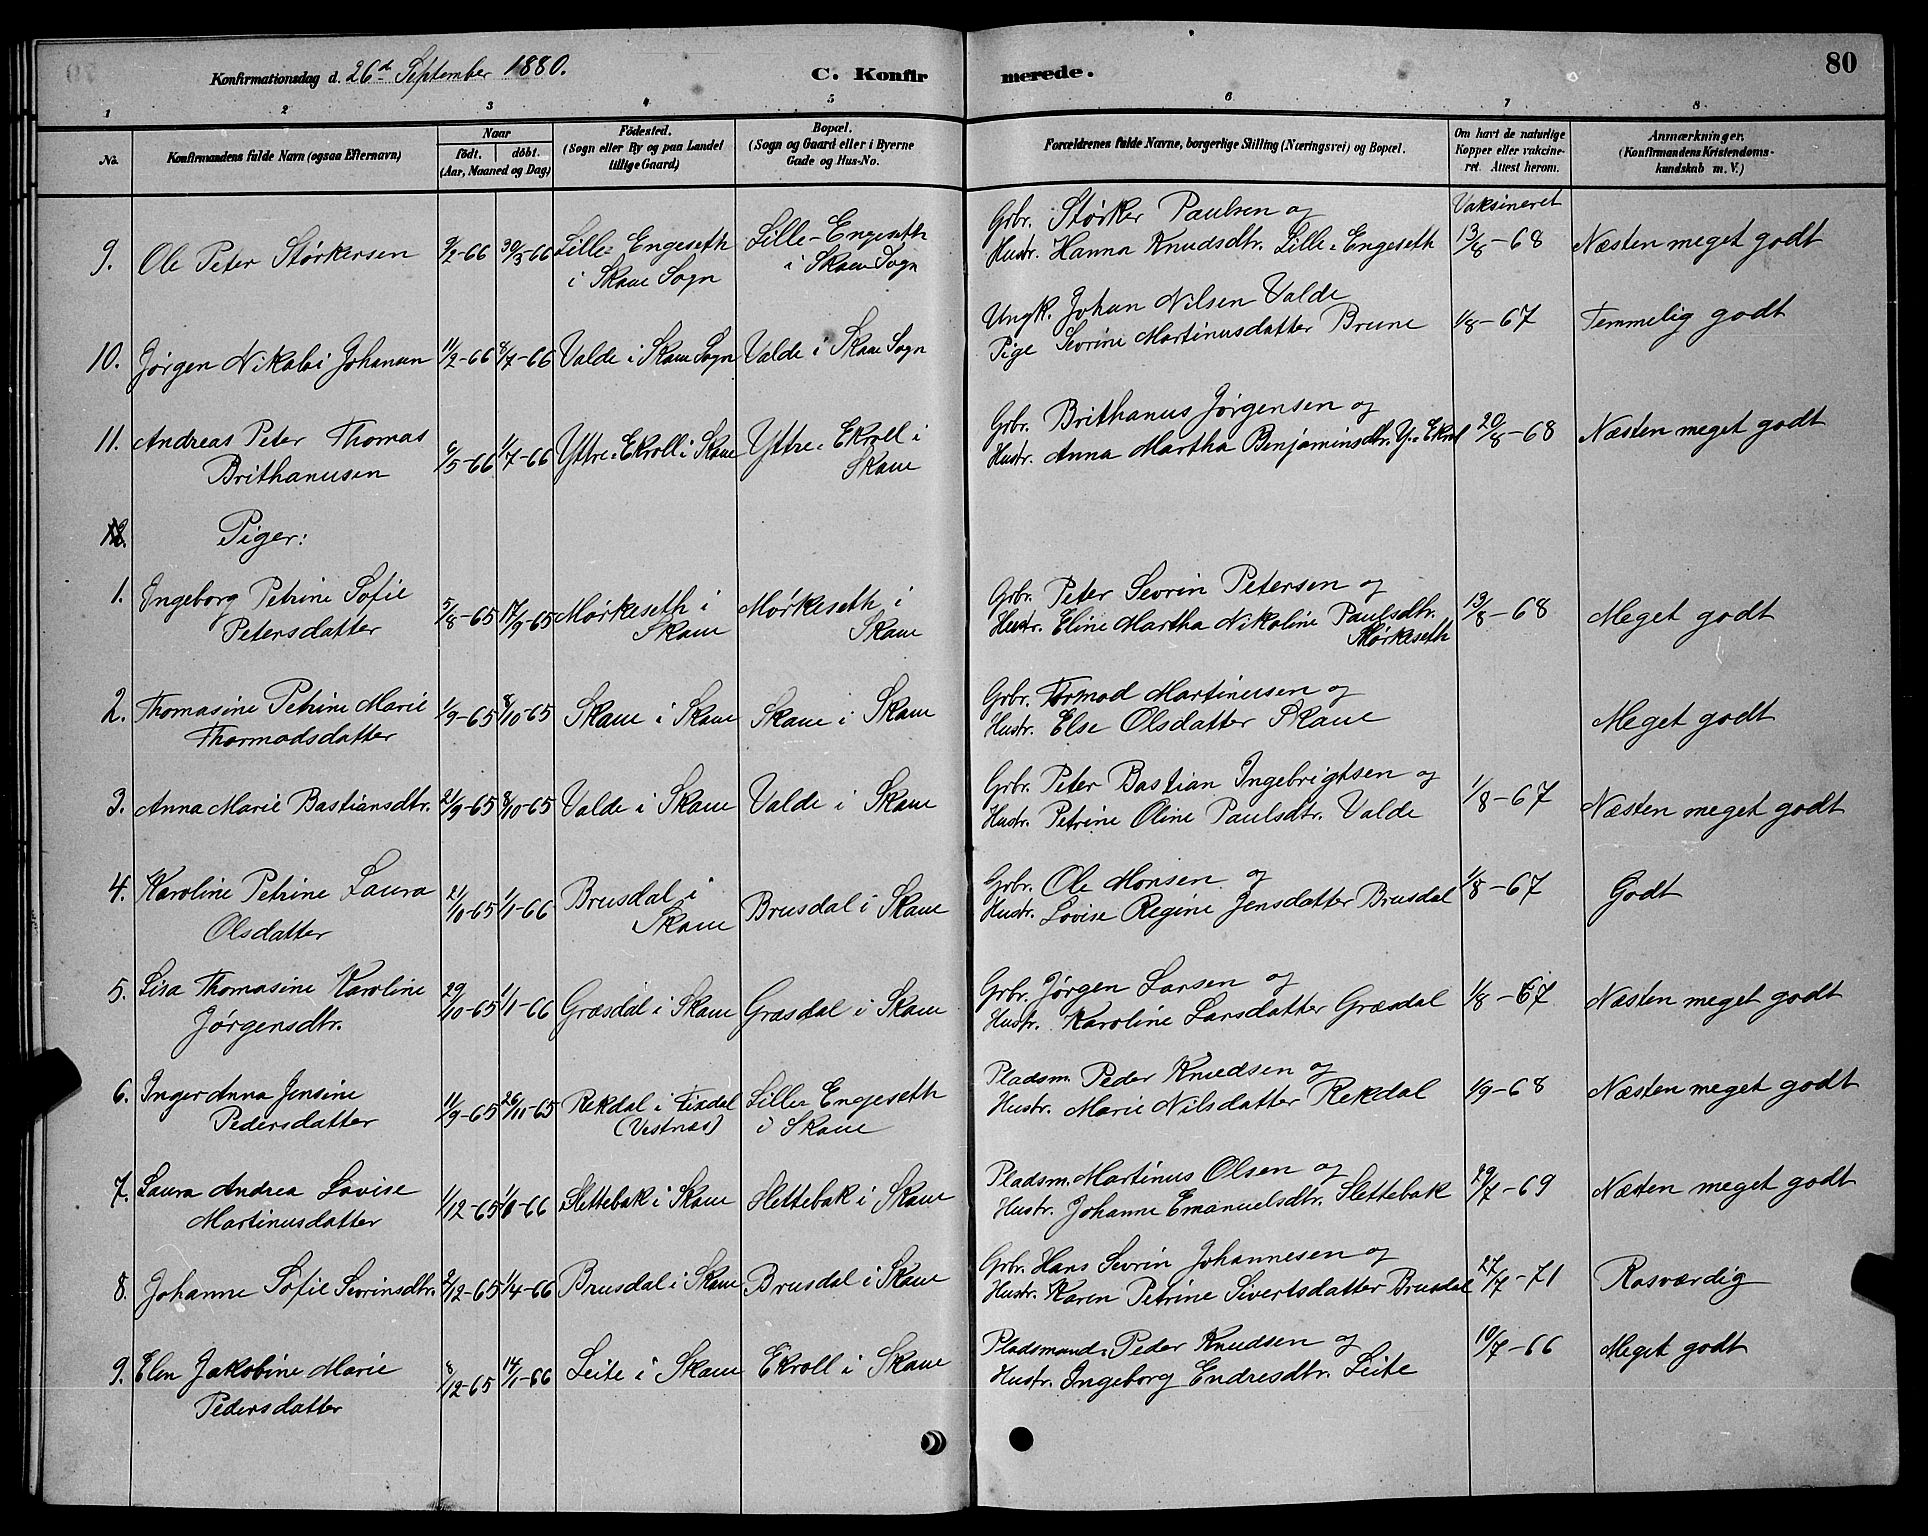 Konfirmationsdag d. 26d September 1880.
C. Konfirmerede.
80
1 2 3 4 5 6 7 8
No.
Konfirmandens fulde Navn (ogsaa Efternavn)
Naar
födt. döbt.
(Aar, Maaned og Dag)
Födested.
(Sogn eller By og paa Landet
tillige Gaard)
Bopæl.
(Sogn og Gaard eller i Byerne
Gade og Hus-No.
Forældrenes fulde Navne, borgerlige Stilling (Næringsvei) og Bopæl.
Om havt de naturlige
Kopper eller vakcine-
ret. Attest herom.
Anmærkninger.
(Konfirmandens Kristendoms-
kundskab m. V.)
Vaksineret
9. Ole Peter Størkersen 9/2-66 30/3-66 Lille-Engeseth i Skaue Sogn Lille-Engeseth i Skaue Sogn Grbr. Størker Paulsen og
Hustr. Hanna Knudsdtr. Lille-Engeseth 13/8-68 Næsten meget godt
10. Jørgen Nikolai Johansen 11/2-66 8/7-66 Valde i Skaue Sogn Valde i Skaue Sogn Ungk. Johan Nilsen Valde
Pige Sevrine Martinusdatter Brune 1/8-67 Temmelig godt
11. Andreas Peter Thomas
Brithanusen 6/5-66 1/7-66 Yttre-Ekroll i Skaue Yttre-Ekroll i Skaue Grbr. Brithanus Jørgensen og
Hustr. Anna Martha Benjaminsdtr. Y.-Ekrol 20/8-68 Næsten meget godt
12. Piger:
1. Ingeborg Petrine Sofie
Petersdatter 5/8-65 17/9-65 Mørkeseth i Skaue Mørkeseth i Skaue Grbr. Peter Sevrin Petersen og
Hustr. Eline Martha Nikoline Paulsdtr.
Mørkeseth 13/8-68 Meget godt
2. Thomasine Petrine Marie
Thormodsdatter 1/9-65 8/10-65 Skaue i Skaue Skaue i Skaue Grbr. Tormod Martinusen og
Hustr. Else Olsdatter Skaue Meget godt
3. Anna Marie Bastiansdtr. 21/9-65 8/10-65 Valde i Skaue Valde i Skaue Grbr. Peter Bastian Ingebrigtsen og
Hustr. Petrine Oline Paulsdtr. Valde 1/8-67 Næsten meget godt
4. Karoline Petrine Laura
Olsdatter 21/10-65 1/1-66 Brusdal i Skaue Brusdal i Skaue Grbr. Ole Monsen og
Hustr. Lovise Regine Jensdatter Brusdal 1/8-67 Godt
5. Lisa Thomasine Karoline
Jørgensdtr. 29/10-65 1/1-66 Græsdal i Skaue Græsdal i Skaue Grbr. Jørgen Larsen og
Hustr. Karoline Larsdatter Græsdal 1/8-67 Næsten meget godt
6. Inger Anna Jensine
Pedersdatter 11/9-65 26/11-65 Rekdal i Fixdal
(Vestnæs) Lille-Engeseth
i Skaue Pladsm. Peder Knudsen og
Hustr. Marie Nilsdatter Rekdal 1/9-68 Næsten meget godt
7. Laura Andrea Lovise
Martinusdatter 1/12-65 1/1-66 Slettebak i Skaue Slettebak i Skaue Pladsm. Martinus Olsen og
Hustr. Johanne Emanuelsdtr. Slettebak 29/7-69 Næsten meget godt
8. Johanne Sofie Sevrinsdtr. 2/12-65 1/4-66 Brusdal i Skaue Brusdal i Skaue Grbr. Hans Sevrin Johannesen og
Hustr. Karen Petrine Sivertsdatter Brusdal 27/7-71 Rosværdig
9. Elen Jakobine Marie
Pedersdatter 8/12-65 14/1-66 Leite i Skaue Ekroll i Skaue Pladsmand. Peder Knudsen og
Hustr. Ingeborg Endresdtr. Leite 10/7-66 Meget godt